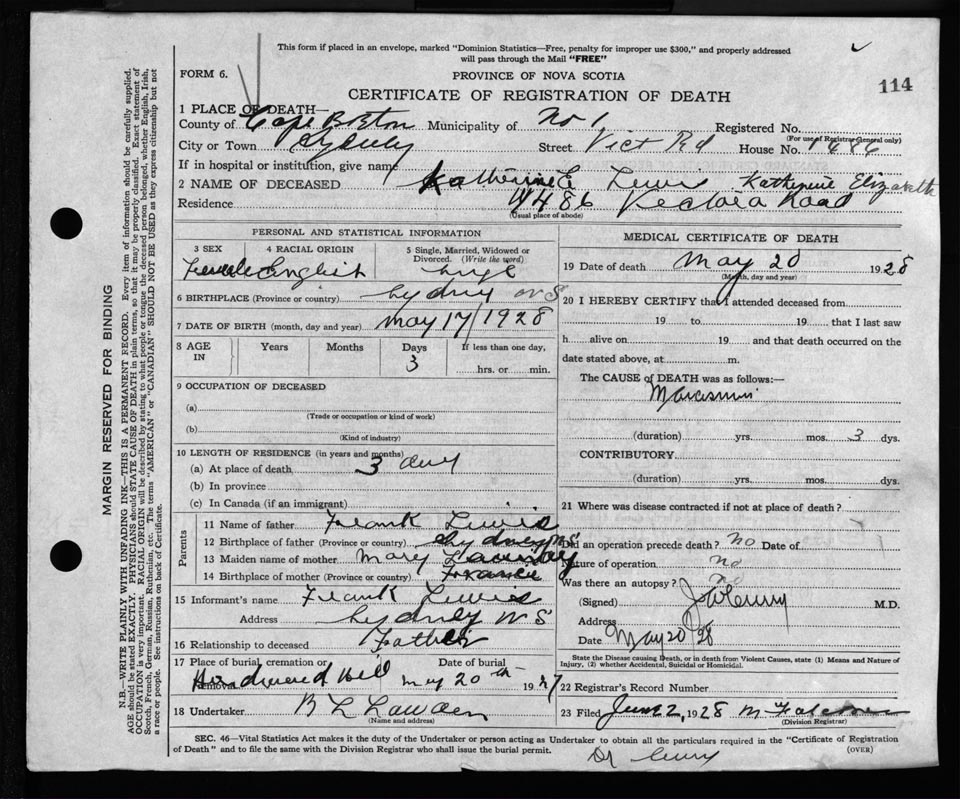 This form if placed in an envelope, marked "Dominion Statistics—Free, penalty for improper use $300," and properly addressed
will pass through the Mail "FREE"
FORM 6.
PROVINCE OF NOVA SCOTIA
114
CERTIFICATE OF REGISTRATION OF DEATH
1 PLACE OF DEATH—
County of Cape Breton Municipality of No 1 Registered No.
(For use of Registrar General only)
City or Town Street Vict Rd House No. 1486
If in hospital or institution, give name
2 NAME OF DECEASED Katherine E Lewis Katherine Elizabeth
Residence 1486 Victoria Road
(Usual place of abode)
PERSONAL AND STATISTICAL INFORMATION
3 SEX Female
4 RACIAL ORIGIN English
5 Single, Married, Widowed or Divorced. (Write the word)
6 BIRTHPLACE (Province or country) Sydney N S
7 DATE OF BIRTH (month, day and year) May 17/1928
8 AGE IN Years Months Days 3 If less than one day, hrs. or min.
9 OCCUPATION OF DECEASED
(a)
(Trade or occupation or kind of work)
(b)
(Kind of industry)
10 LENGTH OF RESIDENCE (in years and months)
(a) At place of death 3 day
(b) In province
(c) In Canada (if an immigrant)
Parents
11 Name of father Frank Lewis
12 Birthplace of father (Province or country) Sydney NS
13 Maiden name of mother Mary
14 Birthplace of mother (Province or country) France
15 Informant's name Frank Lewis
Address Sydney N S
16 Relationship to deceased Father
17 Place of burial, cremation or removal Hardwood Hill Date of burial May 20th 1927
18 Undertaker B L
(Name and address)
MEDICAL CERTIFICATE OF DEATH
19 Date of death May 20 1928
(Month, day and year)
20 I HEREBY CERTIFY that I attended deceased from
19 to 19 that I last saw
h alive on 19 and that death occurred on the
date stated above, at m.
The CAUSE of DEATH was as follows:—
Marasmus
(duration) yrs. mos. 3 dys.
CONTRIBUTORY
(duration) yrs. mos. dys.
21 Where was disease contracted if not at place of death?
Did an operation precede death? No Date of
Nature of operation no
Was there an autopsy? no
(Signed) M.D.
Address
Date May 20/28
State the Disease causing Death, or in death from Violent Causes, state (1) Means and Nature of
Injury, (2) whether Accidental, Suicidal or Homicidal.
22 Registrar's Record Number
23 Filed June 2, 1928
(Division Registrar)
SEC. 46—Vital Statistics Act makes it the duty of the Undertaker or person acting as Undertaker to obtain all the particulars required in the "Certificate of Registration
of Death" and to file the same with the Division Registrar who shall issue the burial permit. (OVER)
Dr
MARGIN RESERVED FOR BINDING
N.B.—WRITE PLAINLY WITH UNFADING INK—THIS IS A PERMANENT RECORD. Every item of information should be carefully supplied.
AGE should be stated EXACTLY. PHYSICIANS should STATE CAUSE OF DEATH in plain terms, so that it may be properly classified. Exact statement of
OCCUPATION is very important. RACIAL ORIGIN will be described by stating to what people or tongue the deceased person belonged, whether English, Irish,
Scotch, French, German, Russian, Ruthenian, etc. The terms "AMERICAN" or "CANADIAN" SHOULD NOT BE USED as they express citizenship but not
a race or people. See instructions on back of Certificate.